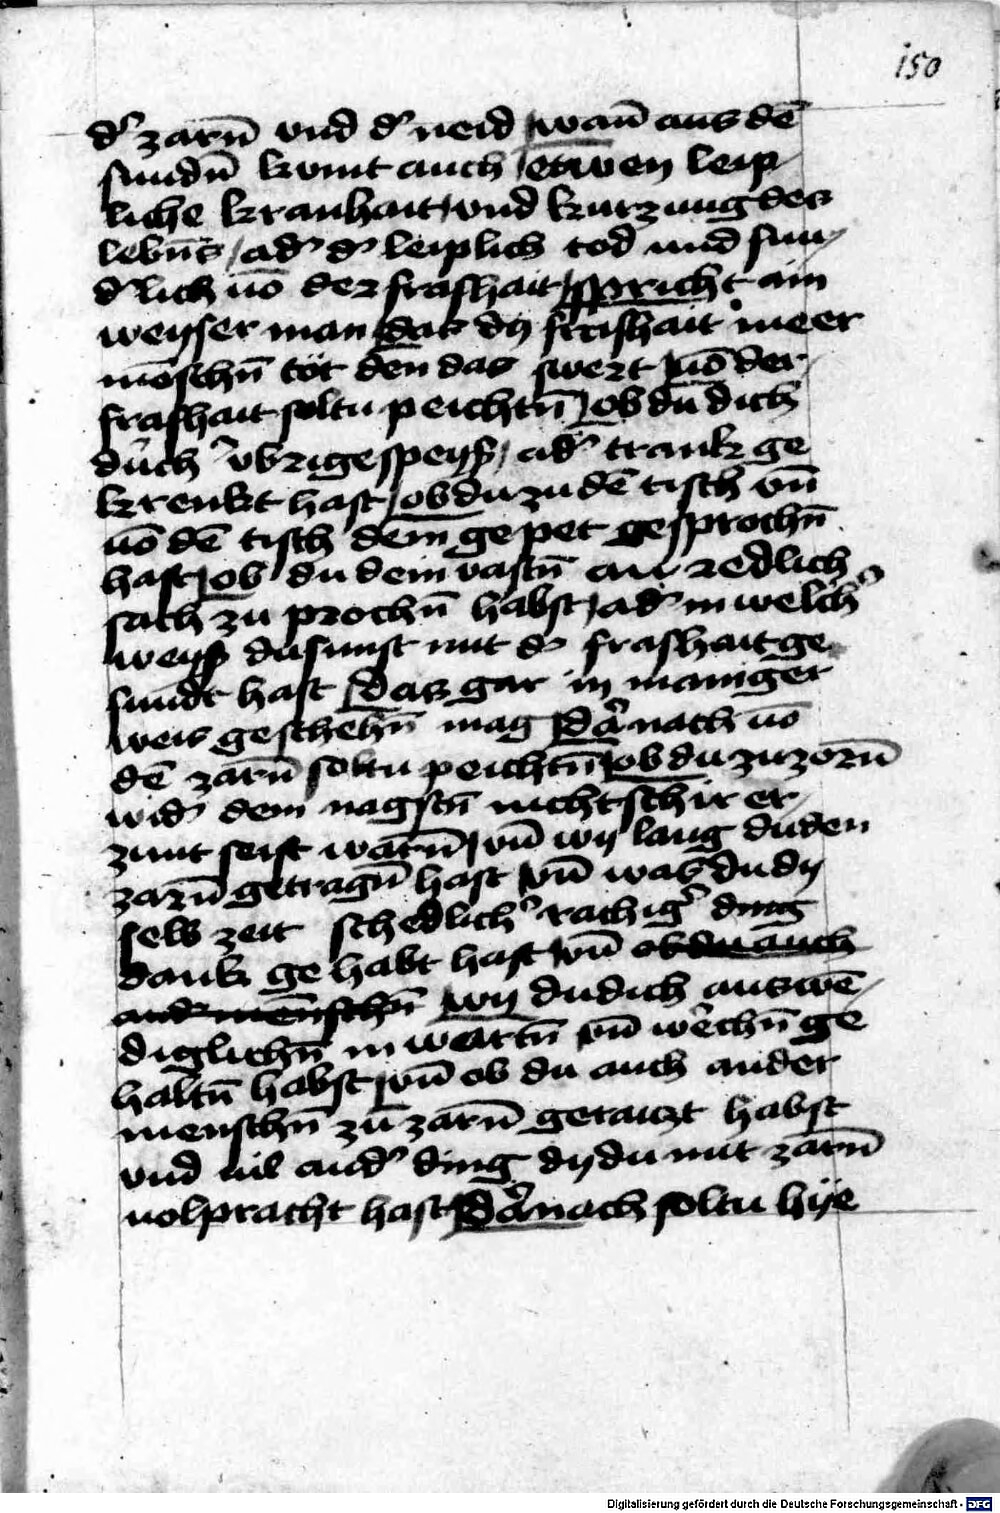 150
d' zarñ vnd d' neid / wañ aus dē
sundñ kumt auch / etwen leip
liche kranhait / vnd kurzung des
lebñs / ad' d' leiplich tod und sun
d'lich uō der frashait / spricht ain
weyser man das dy frashait meer
mēschñ töt deñ das swert / uō der
frashait soltu peichtñ / ob du dich
durch vbrige speyß / ad' trank ge
krenkt hast / ob du zu dē tisch vñ
uō dē tisch dein gepet gesprochñ
hast / ob du dein vastñ an redlich
sach zu prochñ habst / ad' in welch'
weyß du sunst mit d' frashait ge
sundt hast / Das gar in maniger
weis geschehñ mag / Dānach uō
dē zarñ soltu peichtñ / ob du zu zorñ
wid' dein nagstñ nicht schir er
zunt seist warñ / vñ wy lang du den
zarñ getragñ hast / vñ was du dy
selb zeit schedlich' rachig' ding
dank gehabt hast / vñ ob du auch
and' menschñ / wy du dich auswē
diglichñ in wartñ vñ werchñ ge
haltñ habst / vñ ob du auch ander
menschñ zu zarñ getaizt habst
vnd uil and' ding dy du mit zarñ
uolpracht hast / Dānach soltu hye
Digitalisierung gefördert durch die Deutsche Forschungsgemeinschaft - DFG